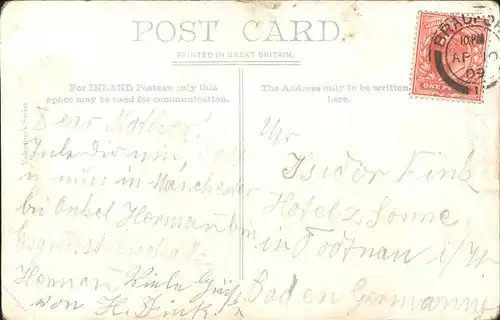 POST CARD.
PRINTED IN GREAT BRITAIN.
For INLAND Postage only this
space may be used for communication.
The Address only to be written
here.
Valentine's Series
BRADFORD
10. PM
AP
09
ONE PENNY
Dear Mother!
Teile Dir mit,
in Manchester
bei Onkel Herman bin
Herman Viele Grüße
von H. Fink
Isidor Fink
Hotel z. Sonne
in Todtnau i/W
Baden Germany